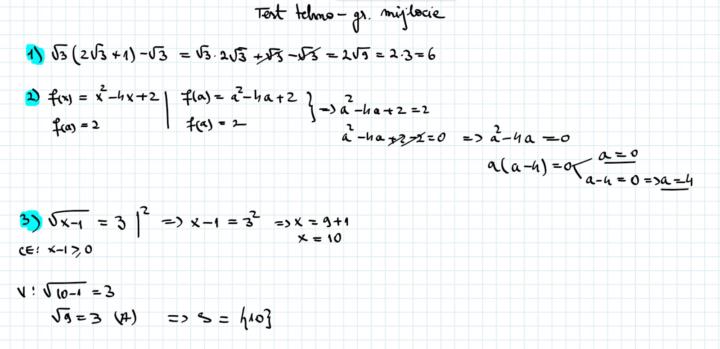 Test tehno - gr. mijlocie
1) √3 (2√3 + 1) - √3 = √3 · 2√3 + √3 - √3 = 2√9 = 2·3 = 6
2) f(x) = x² - 4x + 2 | f(a) = a² - 4a + 2 } => a² - 4a + 2 = 2
f(a) = 2 | f(a) = 2
a² - 4a + 2 - 2 = 0 => a² - 4a = 0
a(a - 4) = 0 a = 0
a - 4 = 0 => a = 4
3) √x-1 = 3 |² => x - 1 = 3² => x = 9 + 1
x = 10
CE: x - 1 ≥ 0
V: √10-1 = 3
√9 = 3 (A) => S = {10}